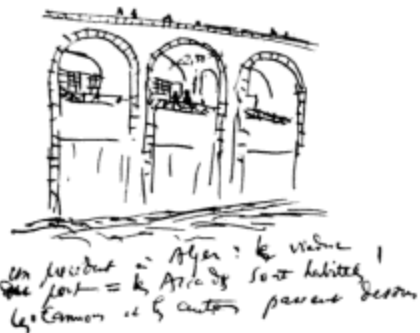 un précédent à Alger : le viaduc
du port = les Arcades sont habitées !
les camions et les autos passent dessus